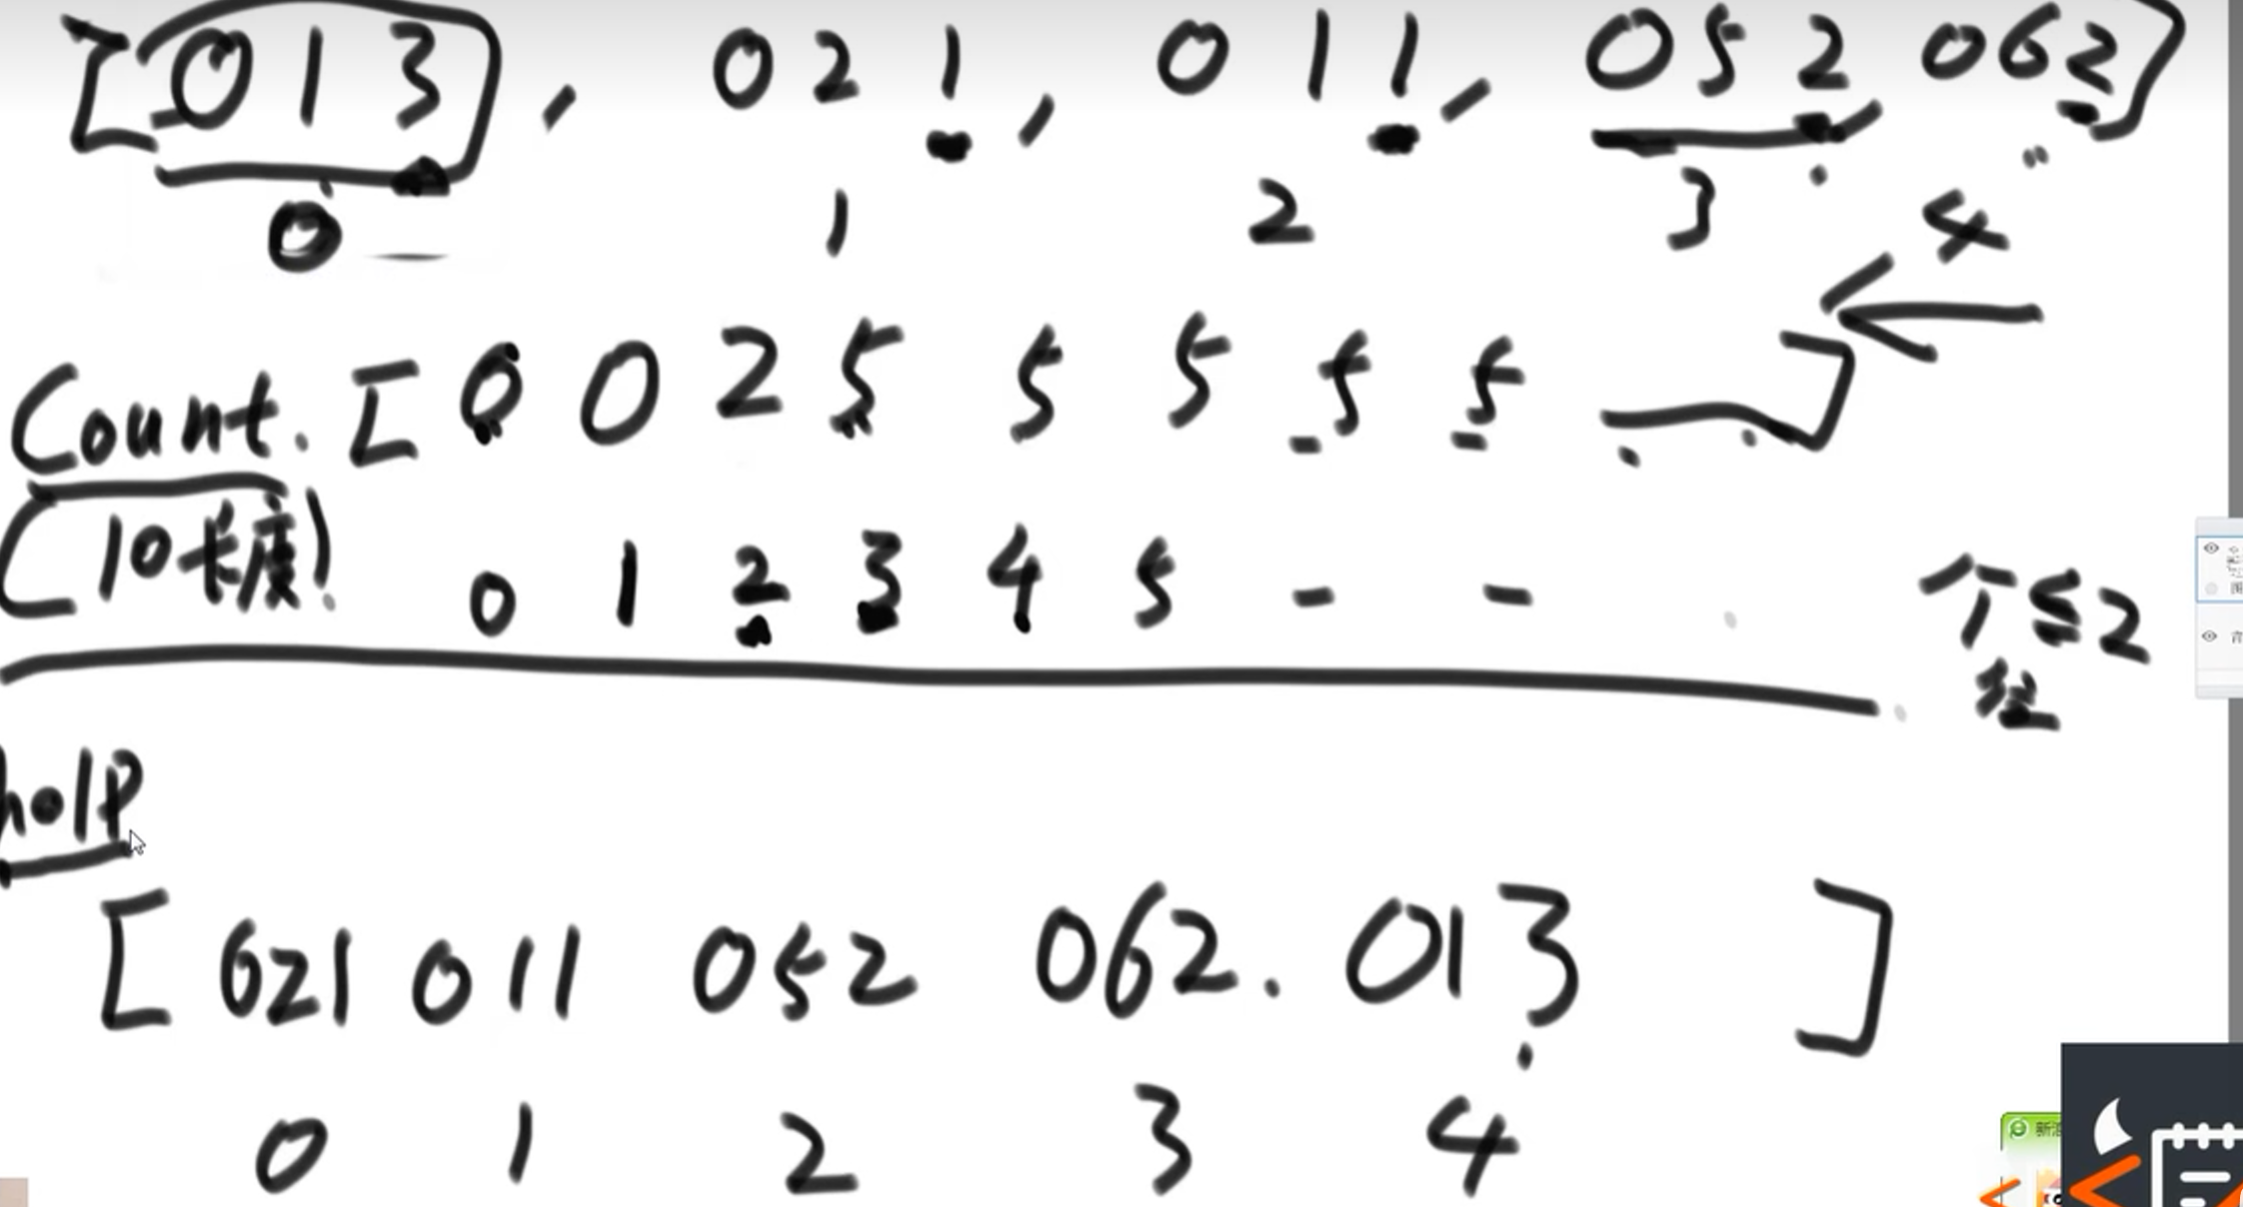 [013, 021, 011, 052, 062]
0 1 2 3 4
Count. [0 0 2 5 5 5 5 5 ]
(10长度) 0 1 2 3 4 5 - -
个≤2
位
help
[021 011 052 062. 013 ]
0 1 2 3 4